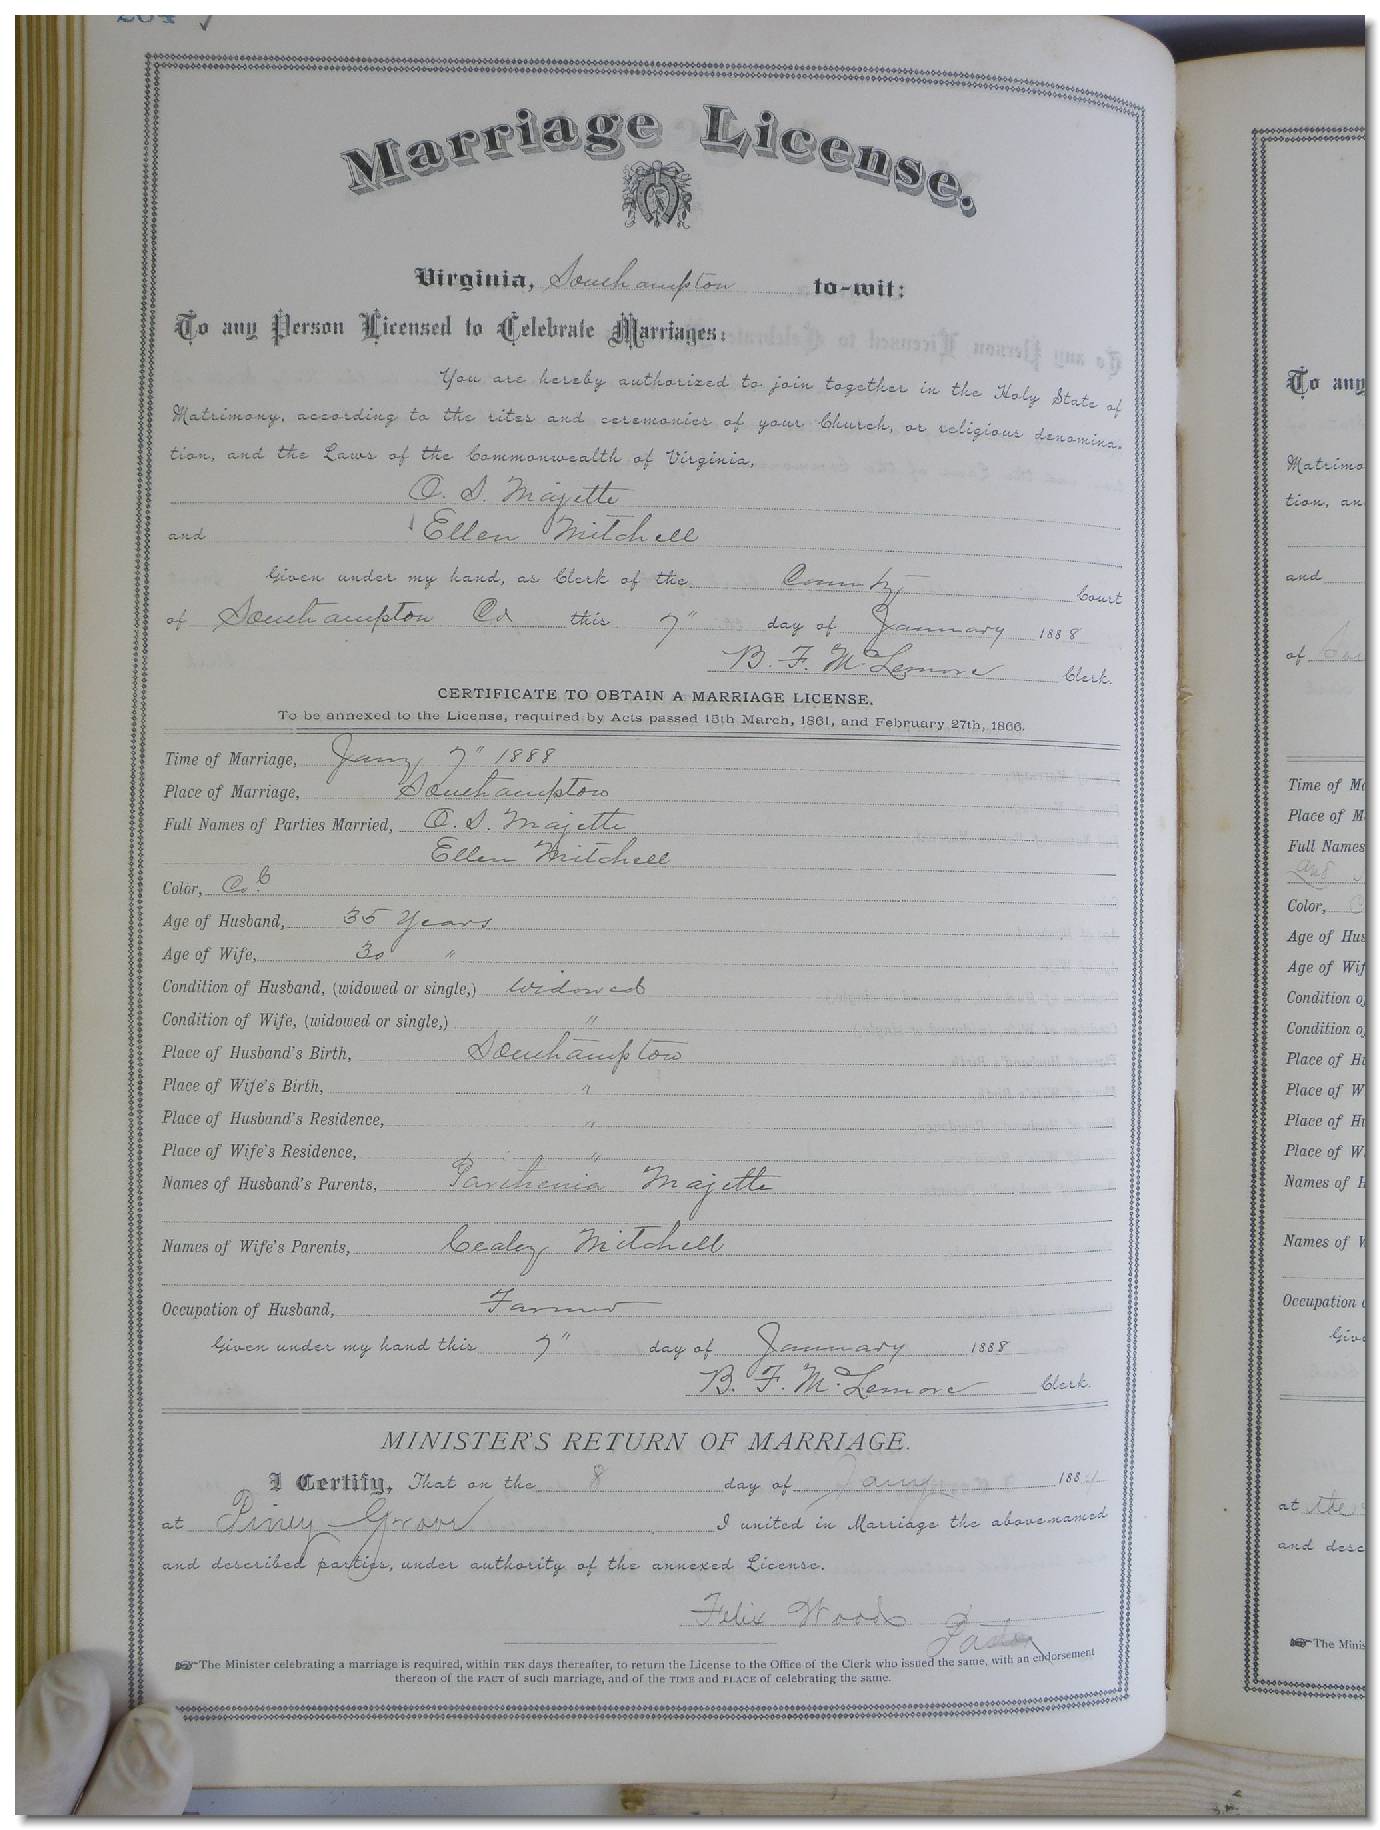 Marriage License.
Virginia, Southampton to-wit:
To any Person Licensed to Celebrate Marriages:
You are hereby authorized to join together in the Holy State of
Matrimony, according to the rites and ceremonies of your Church, or religious denomina-
tion, and the Laws of the Commonwealth of Virginia,
O. S. Majette
and Ellen Mitchell
Given under my hand, as Clerk of the County Court
of Southampton Co this 7" day of January 1888
B. F. McLemore Clerk.
CERTIFICATE TO OBTAIN A MARRIAGE LICENSE.
To be annexed to the License, required by Acts passed 15th March, 1861, and February 27th, 1866.
Time of Marriage, Jany 7" 1888
Place of Marriage, Southampton
Full Names of Parties Married, O. S. Majette
Ellen Mitchell
Color, Cold
Age of Husband, 35 Years
Age of Wife, 30 "
Condition of Husband, (widowed or single,) widowed
Condition of Wife, (widowed or single,) "
Place of Husband's Birth, Southampton
Place of Wife's Birth, "
Place of Husband's Residence, "
Place of Wife's Residence, "
Names of Husband's Parents, Parthenia Majette
Names of Wife's Parents, Cealey Mitchell
Occupation of Husband, Farmer
Given under my hand this 7" day of January 1888
B. F. McLemore Clerk.
MINISTER'S RETURN OF MARRIAGE.
I Certify, That on the 8 day of Jany 188
at Piney Grove I united in Marriage the above-named
and described parties, under authority of the annexed License.
Felix Woods
Pastor
The Minister celebrating a marriage is required, within TEN days thereafter, to return the License to the Office of the Clerk who issued the same, with an endorsement
thereon of the FACT of such marriage, and of the TIME and PLACE of celebrating the same.
To any
Matrimo
tion, an
and
of
Time of Ma
Place of M
Full Names
and
Color,
Age of Hus
Age of Wif
Condition o
Condition o
Place of Hu
Place of W
Place of Hu
Place of W
Names of H
Names of W
Occupation o
Give
at the
and desc
The Minis